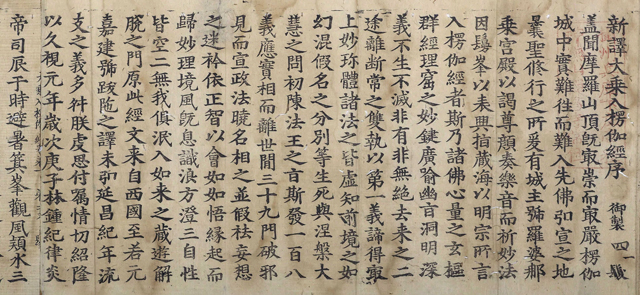 新譯大乘入楞伽經序 御製
蓋聞摩羅山頂既最崇而最嚴楞伽
城中實難往而難入先佛引宣之地
曩聖修行之所爰有城主號羅婆那
乘宮殿以謁尊顏奏樂音而祈妙法
因鬘峯以表興指藏海以明宗所言
入楞伽經者斯乃諸佛心量之玄樞
群經理窟之妙鍵廣喻幽旨洞明深
義不生不滅非有非無絕去來之二
途離斷常之雙執以第一義諦得最
上妙珍體諸法之皆虛知前境之如
幻混假名之分別等生死與涅槃大
慧之問初陳法王之旨斯發一百八
義應實相而離世間三十九門破邪
見而宣政法曉名相之並假祛妄想
之迷衿依正智以會如如悟緣起而
歸妙理境風既息識浪方澄三自性
皆空二無我俱泯入如來之藏遊解
脫之門原此經文來自西國至若元
嘉建號跋陁之譯未弘延昌紀年流
支之義多舛朕虔思付囑情切紹隆
以久視元年歲次庚子林鍾紀律炎
帝司辰于時避暑箕峯觀風潁水三